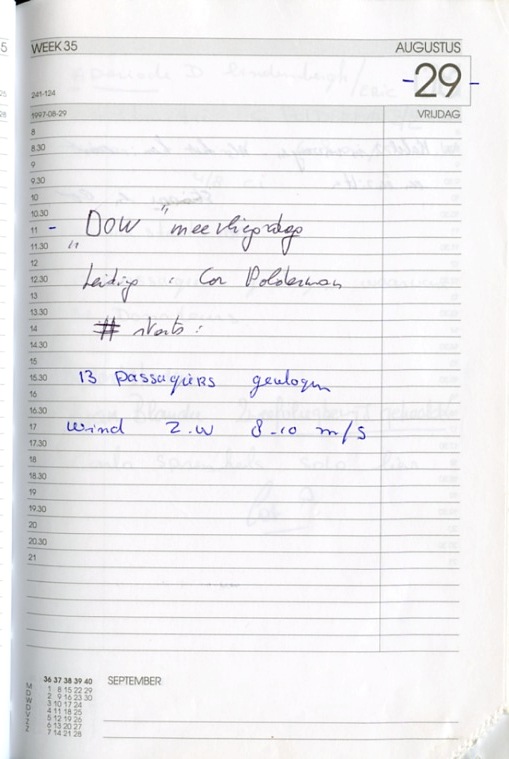 WEEK 35 AUGUSTUS
-29-
241-124
1997-08-29 VRIJDAG
8
8.30
9
9.30
10
10.30
11 - DOW "meevliegdag"
11.30
12
12.30 Leiding : Cor Polderman
13
13.30
14 # starts :
14.30
15
15.30 13 passagiers gevlogen
16
16.30
17 wind Z.W 8-10 m/s
17.30
18
18.30
19
19.30
20
20.30
21
36 37 38 39 40 SEPTEMBER
M 1 8 15 22 29
D 2 9 16 23 30
W 3 10 17 24
D 4 11 18 25
V 5 12 19 26
Z 6 13 20 27
Z 7 14 21 28